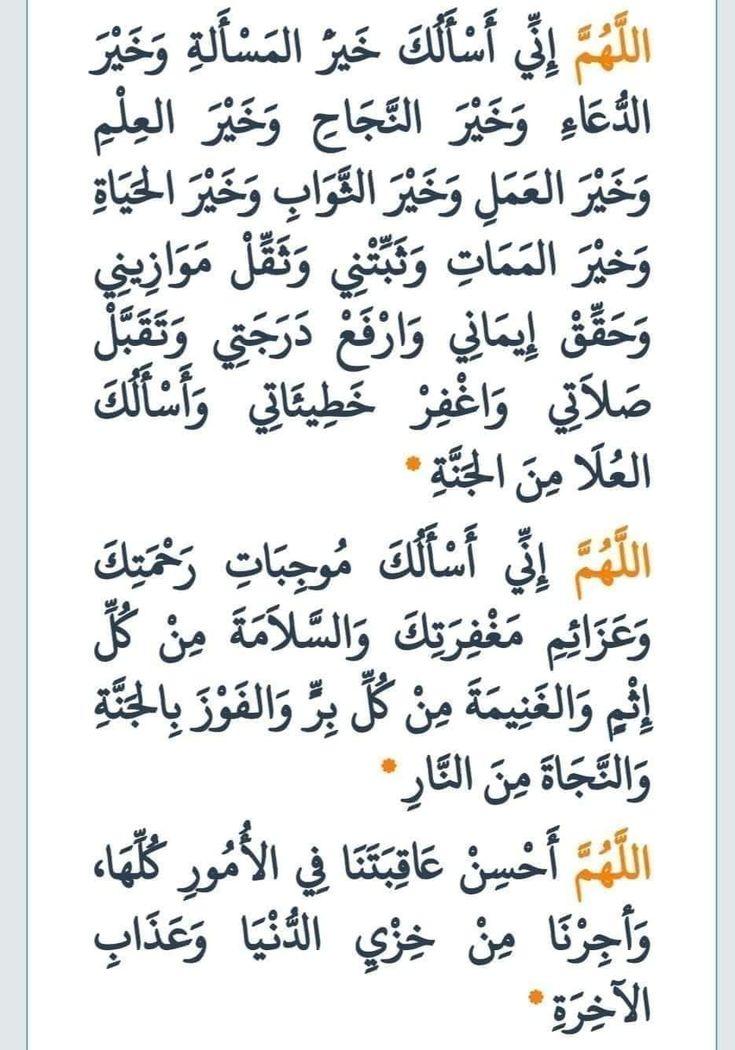 اللَّهُمَّ إِنِّي أَسْأَلُكَ خَيرَ المَسْأَلةِ وَخَيْرَ
الدُّعَاءِ وَخَيْرَ النَّجَاحِ وَخَيْرَ العِلْمِ
وَخَيْرَ العَمَلِ وَخَيْرَ الثَّوَابِ وَخَيْرَ الحَيَاةِ
وَخيْرَ المَمَاتِ وَثَبِّتْنِي وَثَقِّلْ مَوَازِينِي
وَحَقِّقْ إِيمَانِي وَارْفَعْ دَرَجَتِي وَتَقَبَّلْ
صَلاَتِي وَاغْفِرْ خَطِيئَاتِي وَأَسْأَلُكَ
العُلَا مِنَ الجَنَّةِ *
اللَّهُمَّ إِنِّي أَسْأَلُكَ مُوجِبَاتِ رَحْمَتِكَ
وَعَزَائِمِ مَغْفِرَتِكَ وَالسَّلاَمَةَ مِنْ كُلِّ
إِثْمٍ وَالغَنِيمَةَ مِنْ كُلِّ بِرٍّ وَالفَوْزَ بِالجَنَّةِ
وَالنَّجَاةَ مِنَ النَّارِ *
اللَّهُمَّ أَحْسِنْ عَاقِبَتَنَا فِي الأُمُورِ كُلِّهَا،
وَأَجِرْنَا مِنْ خِزْيِ الدُّنْيَا وَعَذَابِ
الآخِرَةِ *